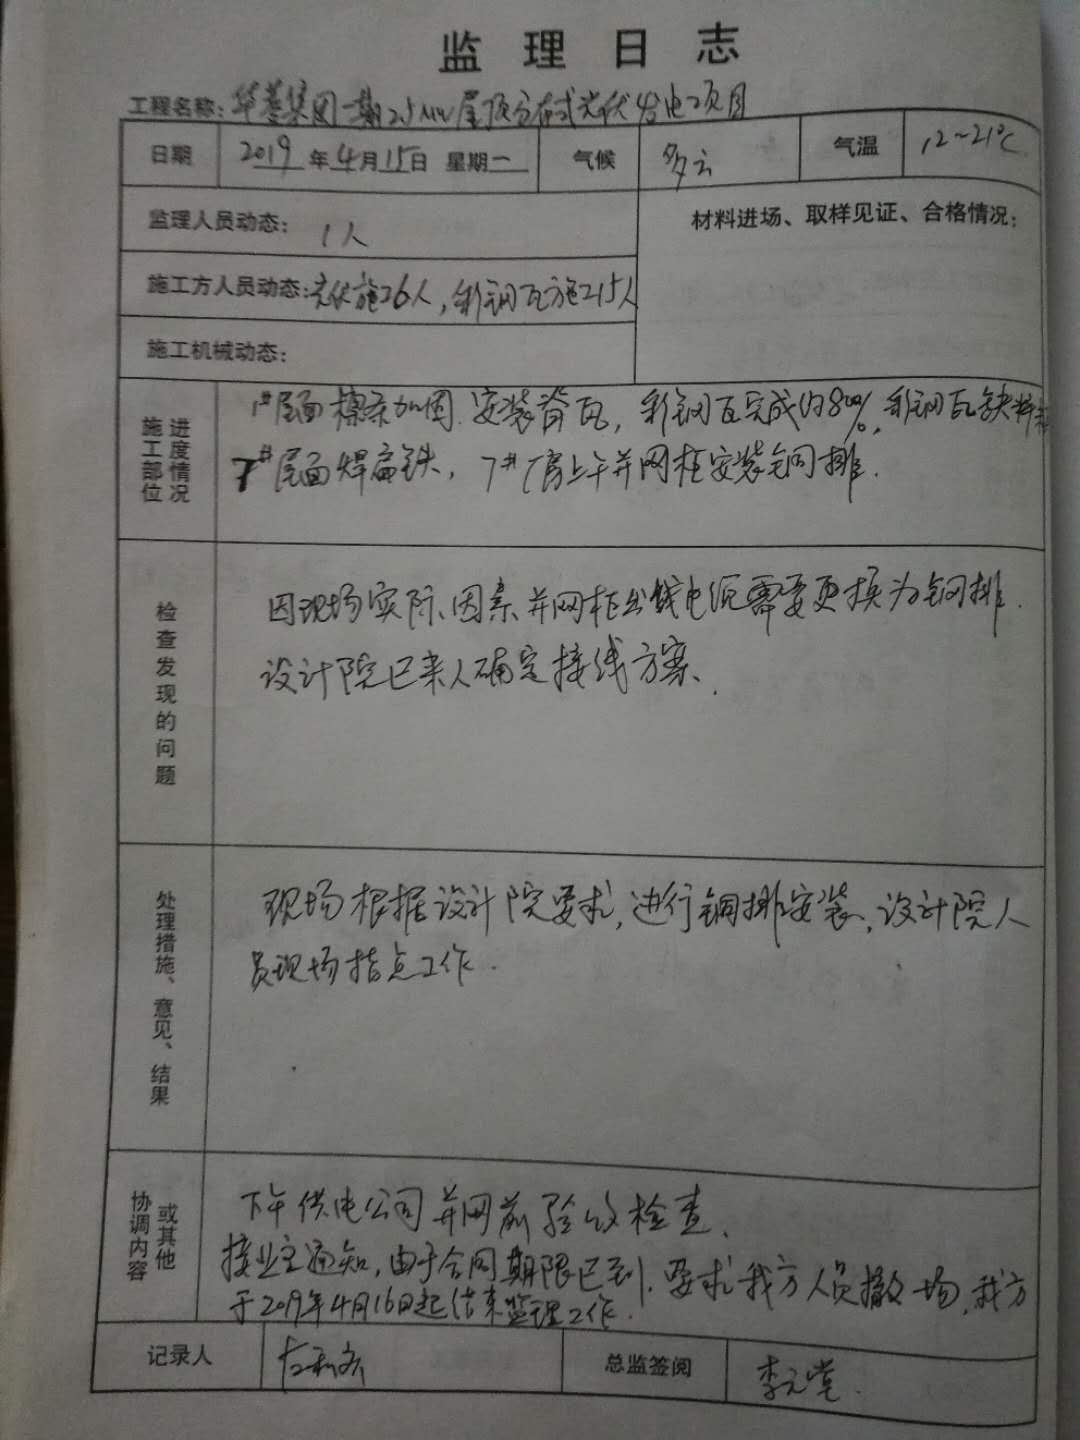 监理日志
工程名称：华基集团一期2.5MW屋顶分布式光伏发电项目
日期 2019年4月15日 星期一 气候 多云 气温 12～21℃
监理人员动态： 1人
材料进场、取样见证、合格情况：
施工方人员动态：光伏施工6人，彩钢瓦施工15人
施工机械动态：
施工部位 进度情况
1#屋面檩条加固.安装脊瓦，彩钢瓦完成约80%，彩钢瓦缺料
7#屋面焊扁铁，7#厂房上午并网柜安装铜排.
检查发现的问题
因现场实际因素并网柜出线电缆需要更换为铜排.
设计院已来人确定接线方案.
处理措施、意见、结果
现场根据设计院要求，进行铜排安装，设计院人
员现场指点工作.
协调内容 或其他
下午供电公司并网前验收检查.
接业主通知，由于合同期限已到.要求我方人员撤场，我方
于2019年4月16日起结束监理工作.
记录人 总监签阅 李元堂